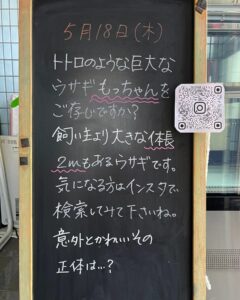 5月18日(木)
トトロのような巨大な
ウサギもっちゃんを
ご存じですか?
飼い主より大きな体長
2mもあるウサギです。
気になる方はインスタで
検索してみて下さいね。
意外とかわいいその
正体は…?